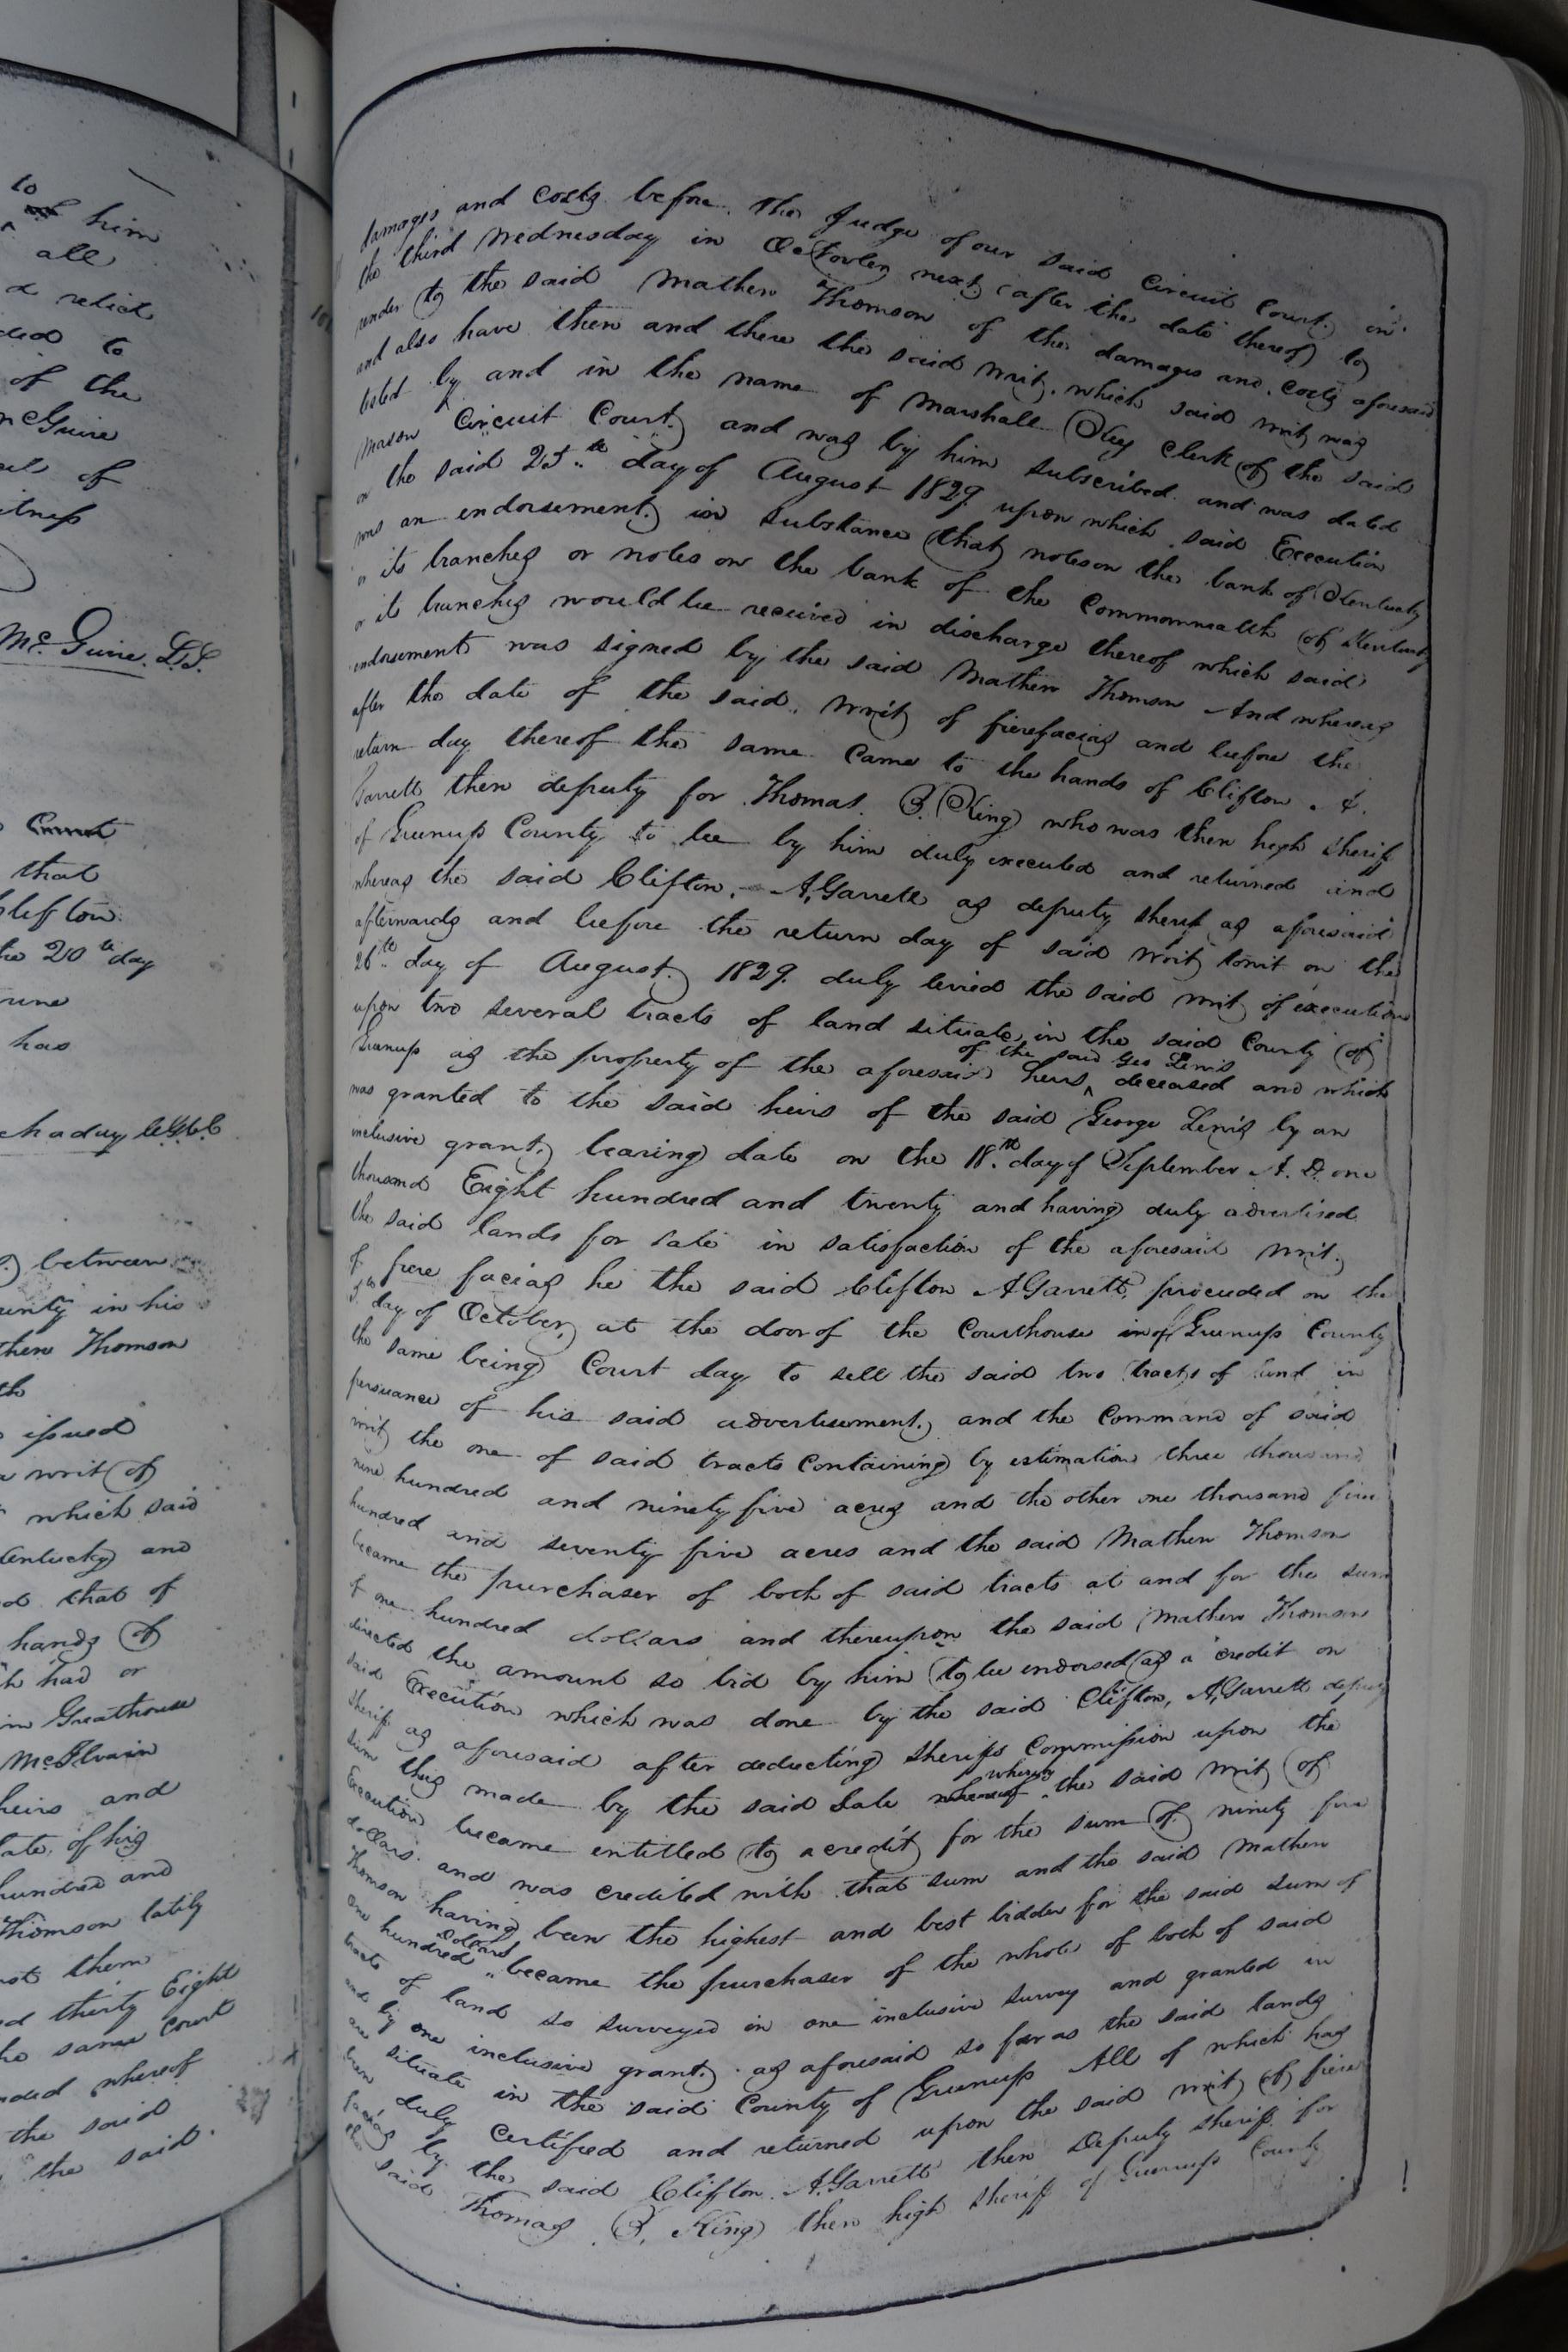 to
him
all
relict
ded to
of the
McGuire
of
itness
McGuire. LS.
that
Clifton
the 20th day
June
has
between
county in his
Mathew Thomson
issued
a writ of
which said
Kentucky and
that of
hands of
had or
Greathouse
McIlvain
heirs and
late, of his
hundred and
Thomson lately
them
thirty Eight
the same Court
whereof
the said
the said
damages and Costs before the Judge of our said Circuit Court in
the third Wednesday in October next, after the date thereof to
render to the said Mathew Thomson of the damages and costs aforesaid
and also have then and there the said writ. which said writ was
tested by and in the name of Marshall Key Clerk of the said
Mason Circuit Court and was by him subscribed and was dated
on the said 25th day of August 1829. upon which said Execution
was an endorsement in substance that notes on the bank of Kentucky
or its branches or notes on the bank of the Commonwealth of Kentucky
or its branches would be received in discharge thereof which said
endorsement was signed by the said Mathew Thomson And whereas
after the date of the said writ of fierefacias and before the
return day thereof the same came to the hands of Clifton A.
Garrett then deputy for Thomas B. King who was then high Sheriff
of Greenup County to be by him duly executed and returned and
whereas the said Clifton A. Garrett as deputy sheriff as aforesaid
afterwards and before the return day of said writ towit on the
26th day of August 1829. duly levied the said writ of execution
upon two several tracts of land situate in the said County of
Greenup as the property of the aforesaid heirs ^ of the said Geo Lewis deceased and which
was granted to the said heirs of the said George Lewis by an
inclusive grant bearing date on the 18th day of September A. D. one
thousand Eight hundred and twenty and having duly advertised
the said lands for sale in satisfaction of the aforesaid writ
of fiere facias he the said Clifton A Garrett, proceeded on the
day of October, at the door of the Courthouse in of Greenup County
the same being Court day to sell the said two tracts of land in
persuance of his said advertisement, and the Command of said
writ the one of said tracts Containing by estimation three thousand
nine hundred and ninety five acres and the other one thousand five
hundred and seventy five acres and the said Mathew Thomson
became the purchaser of both of said tracts at and for the sum
of one hundred dollars and thereupon the said Mathew Thomson
directed the amount so bid by him to be endorsed as a credit on
said Execution which was done by the said Clifton, A, Garrett deputy
Sheriff as aforesaid after deducting Sheriffs Commission upon the
sum thus made by the said Sale whereof whereby the said writ of
Execution became entitled to a credit for the sum of ninety five
dollars and was credited with that sum and the said Mathew
Thomson having been the highest and best bidder for the said sum of
one hundred Dollars became the purchaser of the whole of both of said
tracts of land so surveyed in one inclusive survey and granted in
and by one inclusive grant as aforesaid so far as the said lands
are situate in the said County of Greenup All of which has
been duly Certified and returned upon the said writ of fiere
facias by the said Clifton A. Garrett then Deputy Sheriff for
the said Thomas B. King then high Sheriff of Greenup County